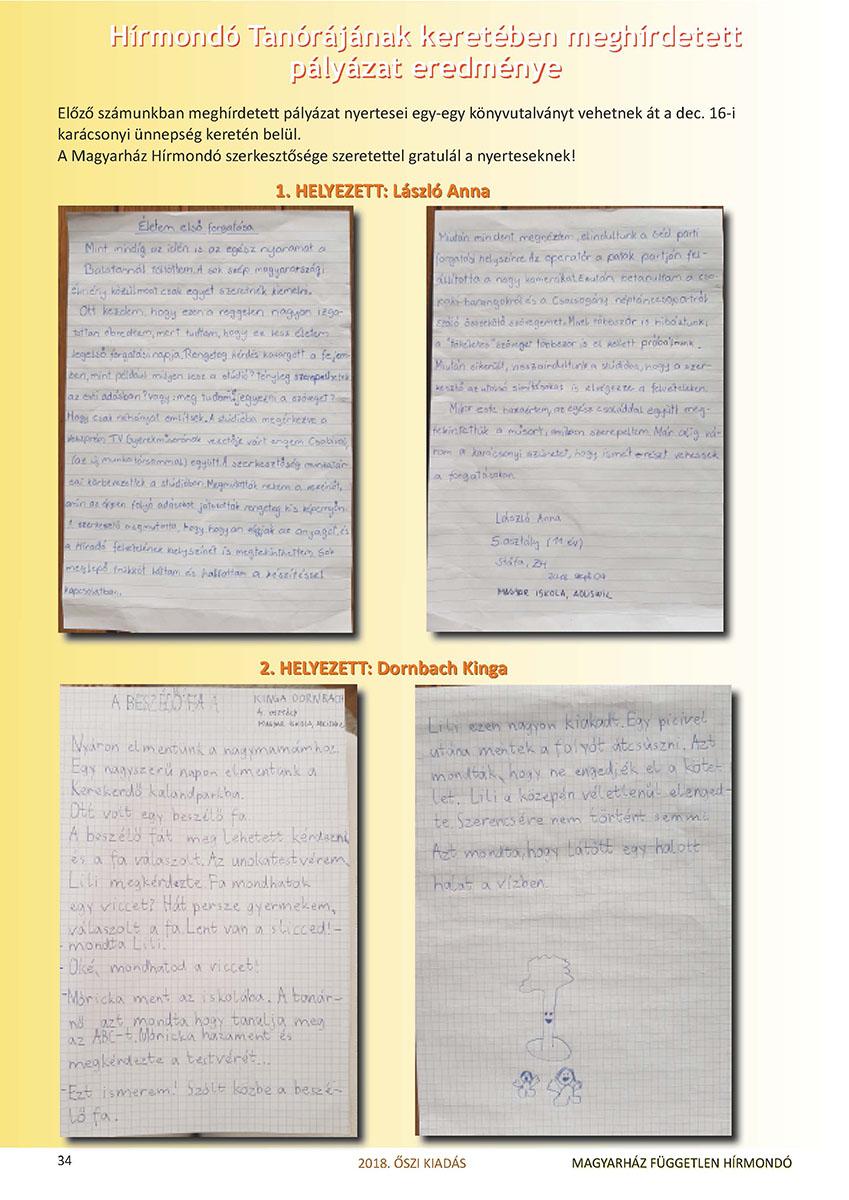 Hírmondó Tanórájának keretében meghírdetett
pályázat eredménye
Előző számunkban meghírdetett pályázat nyertesei egy-egy könyvutalványt vehetnek át a dec. 16-i
karácsonyi ünnepség keretén belül.
A Magyarház Hírmondó szerkesztősége szeretettel gratulál a nyerteseknek!
1. HELYEZETT: László Anna
Életem első forgatása
Mint mindig az idén is az egész nyaramat a
Balatonnál töltöttem. A sok szép magyarországi
élmény közül most csak egyet szeretnék kiemelni.
Ott kezdem, hogy ezen a reggelen nagyon izga-
tottan ébredtem, mert tudtam, hogy ez lesz életem
legelső forgatási napja. Rengeteg kérdés kavargott a fejem-
ben, mint például milyen lesz a stúdió? Tényleg szerepelhetek
az esti adásban? Vagy: meg tudom jegyezni a szöveget?
Hogy csak néhányat említsek. A stúdióba megérkezve a
Veszprém TV gyerekműsorának vezetője várt engem Csabival,
(az új munkatársammal) együtt. A szerkesztőség munkatár-
sai körbevezettek a stúdióban. Megmutatták nekem a
amin az éppen folyó adásokat játszották rengeteg kis képernyőn.
A szerkesztő megmutatta, hogy hogyan vágják az anyagot, és
a Híradó felvételének helyszínét is megtekinthettem. Sok
meglepő trükköt láttam és hallottam a készítéssel
kapcsolatban.
Miután mindent megnéztem, elindultunk a Séd parti
forgatási helyszínre. Az operatőr a patak partján fel-
állította a nagy kamerákat. Ezután betanultam a cso-
paki harangokról és a Csacsogány néptánccsoportról
szóló összekötő szövegemet. Mivel többször is hibáztunk,
a "tökéletes" szöveget többször is el kellett próbálnunk.
Miután sikerült, visszaindultunk a stúdióba, hogy a szer-
kesztő az utolsó simításokat is elvégezze a felvételeken.
Mikor este hazaértem, az egész családdal együtt meg-
tekintettük a műsort, amiben szerepeltem. Már alig vá-
rom a karácsonyi szünetet, hogy ismét részt vehessek
a forgatásokon.
László Anna
5. osztály (11 év)
Stäfa, ZH
MAGYAR ISKOLA, ADLISWIL
2. HELYEZETT: Dornbach Kinga
A BESZÉLŐ FA
KINGA DORNBACH
4. osztály
MAGYAR ISKOLA, ADLISWIL
Nyáron elmentünk a nagymamámhoz.
Egy nagyszerű napon elmentünk a
Kerekerdő kalandparkba.
Ott volt egy beszélő fa.
A beszélő fát meg lehetett kérdezni
és a fa válaszolt. Az unokatestvérem
Lili megkérdezte. Fa mondhatok
egy viccet? Hát persze gyermekem,
válaszolt a fa. Lent van a slicced! -
mondta Lili.
- Oké, mondhatod a viccet!
- Móricka ment az iskolába. A tanár-
nő azt mondta hogy tanulja meg
az ABC-t. Móricka hazament és
megkérdezte a testvérét...
- Ezt ismerem! Szólt közbe a beszé-
lő fa.
Lili ezen nagyon kiakadt. Egy picivel
utána mentek a folyót átcsúszni. Azt
mondták, hogy ne engedjék el a köte-
let. Lili a közepén véletlenül elenged-
te. Szerencsére nem történt semmi.
Azt mondta, hogy látott egy halott
halat a vízben.
34
2018. ŐSZI KIADÁS
MAGYARHÁZ FÜGGETLEN HÍRMONDÓ